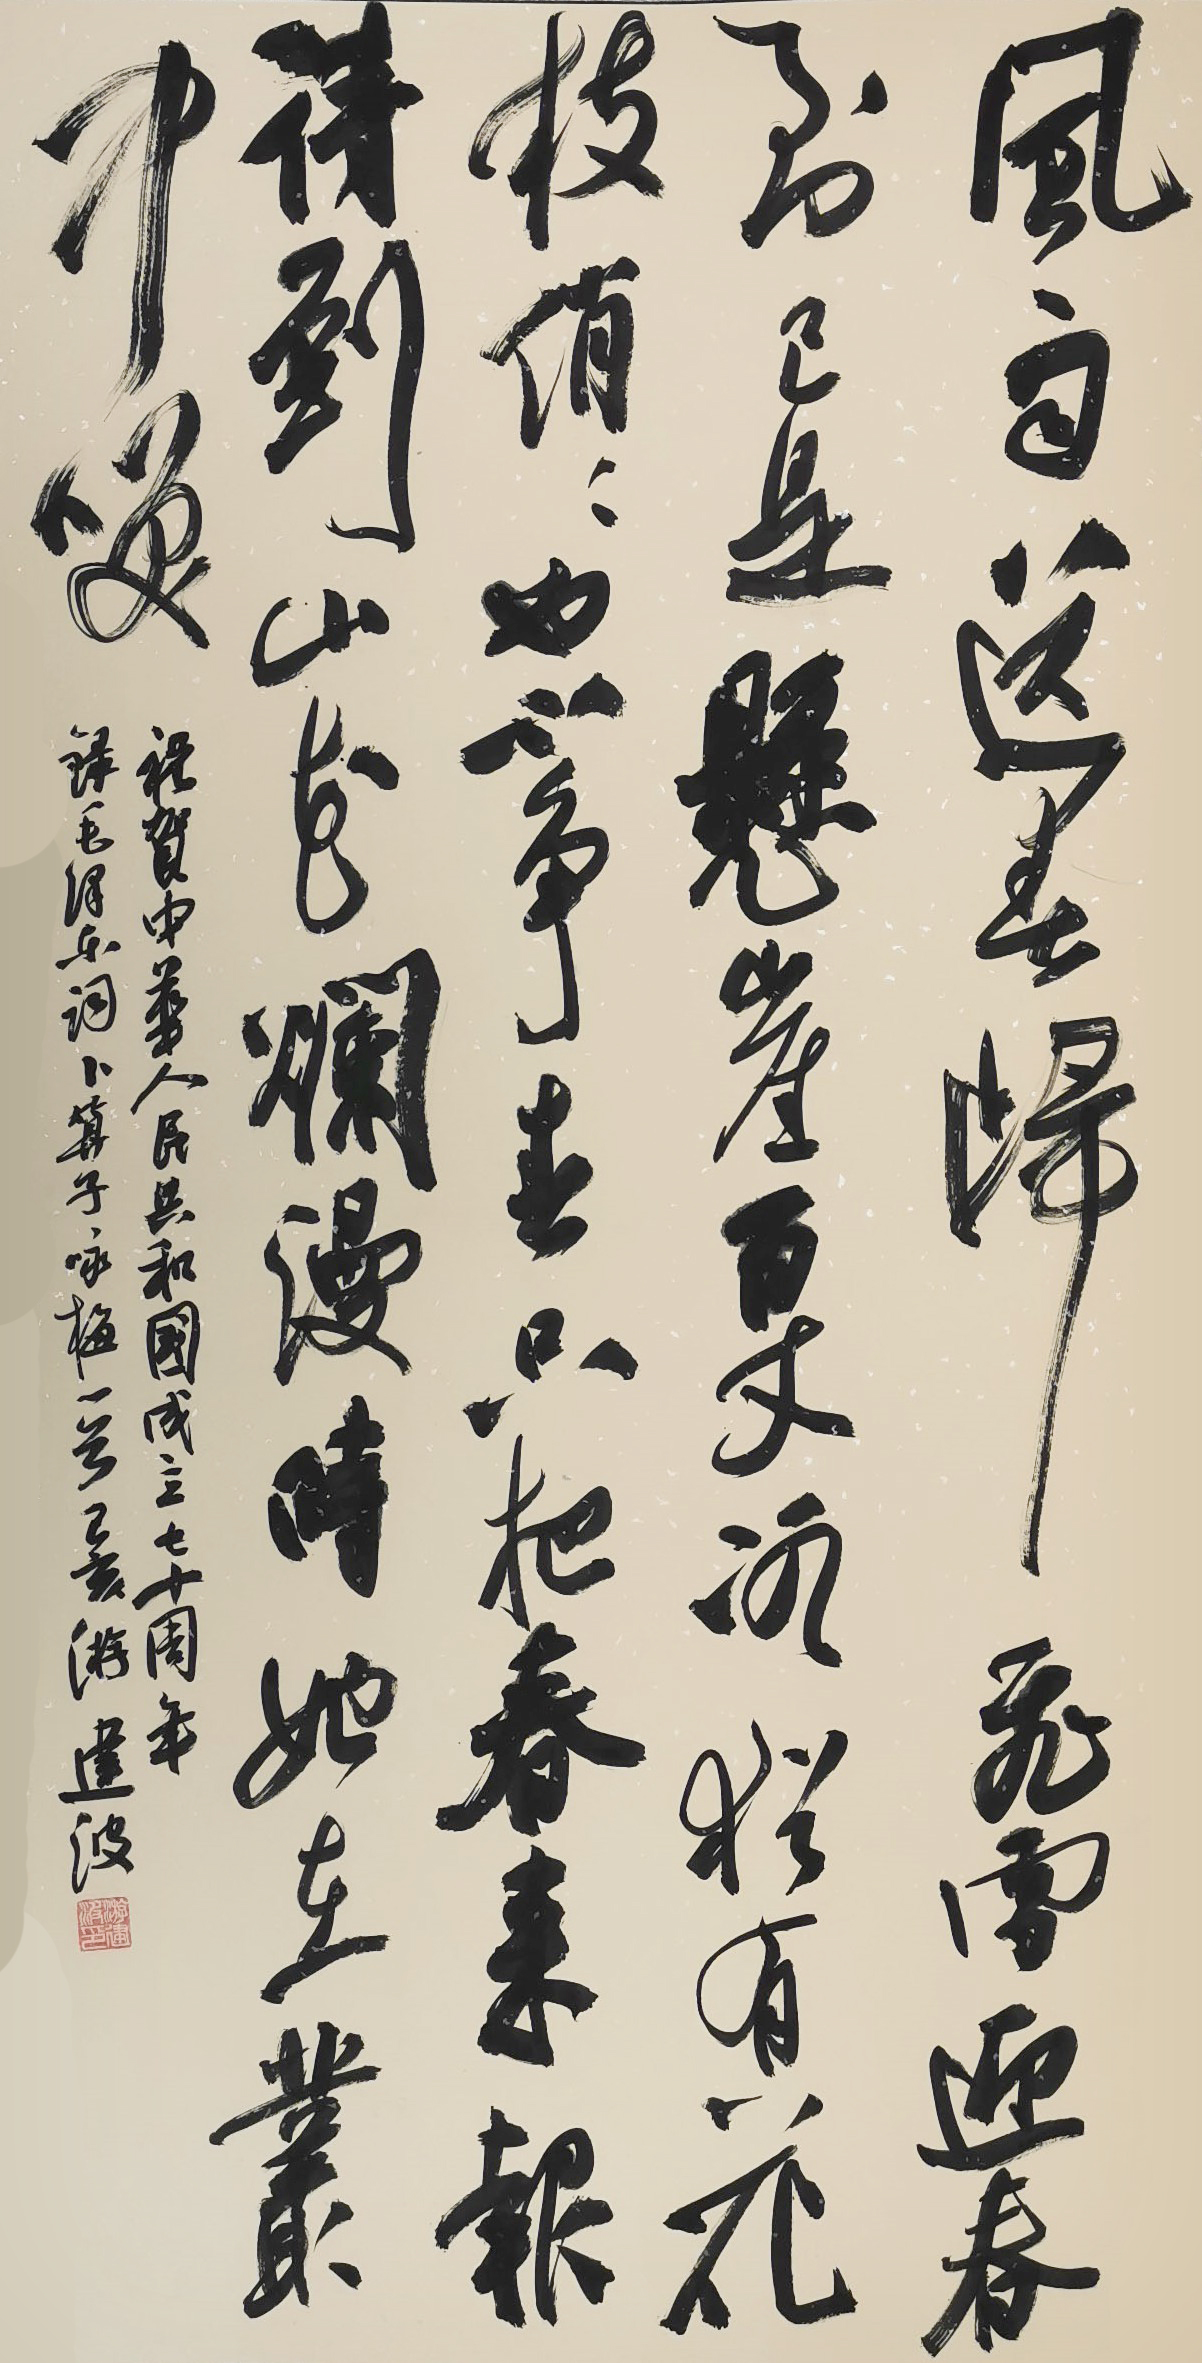 風雨送春歸飛雪迎春
到已是懸崖百丈冰猶有花
枝俏〻也不爭春只把春來報
待到山花爛漫時她在叢
中笑
祝賀中華人民共和國成立七十周年
錄毛澤東詞卜算子咏梅一首己亥游建波
游建波印